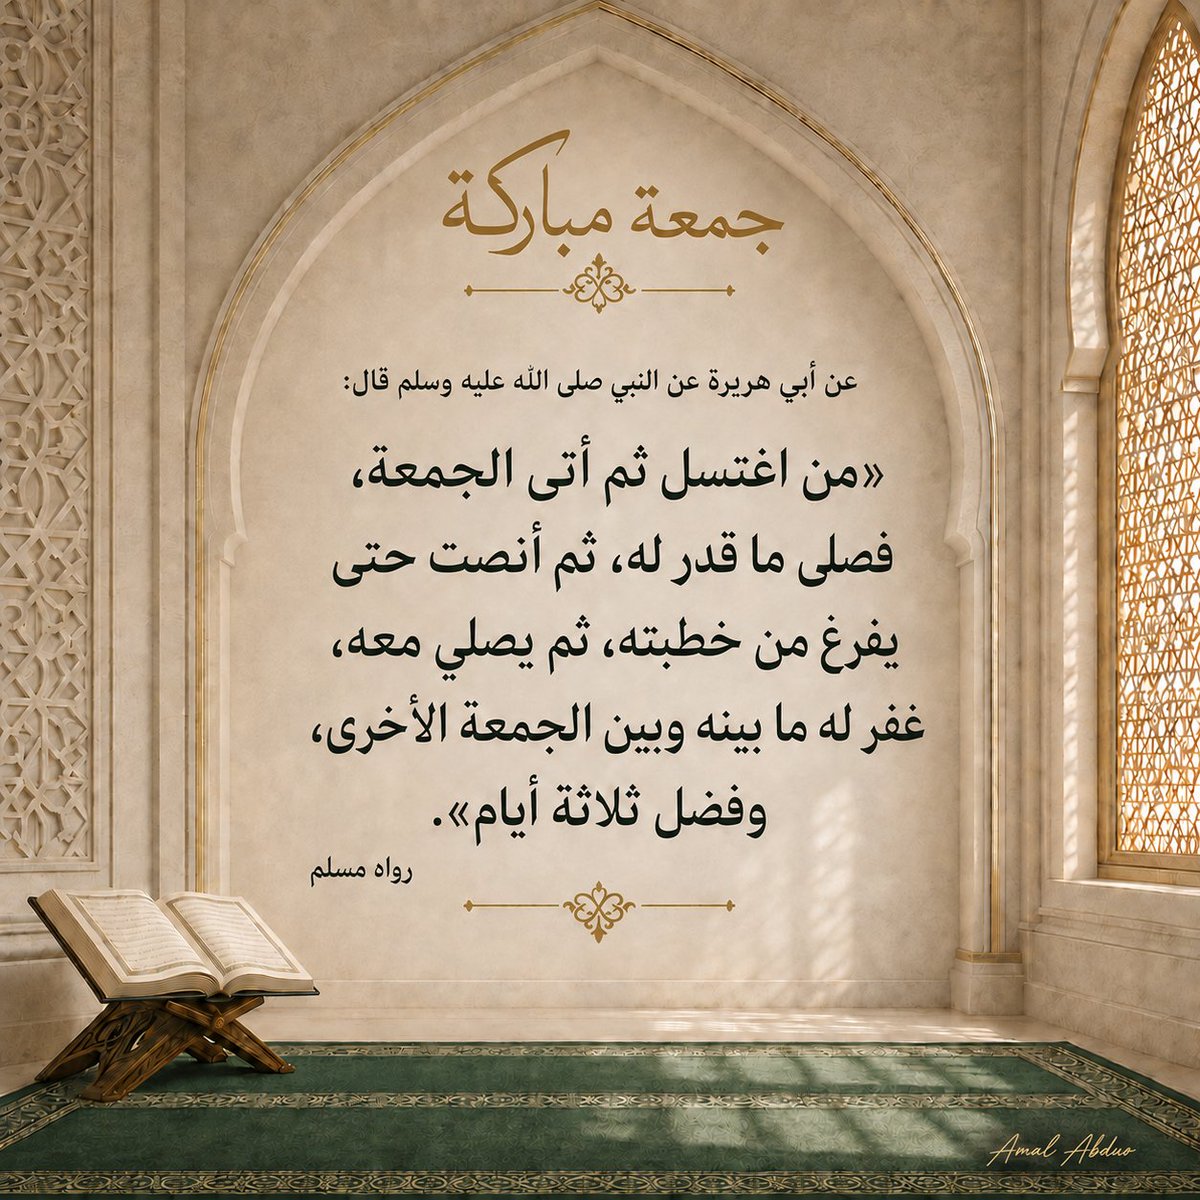 جمعة مباركة
عن أبي هريرة عن النبي صلى الله عليه وسلم قال:
«من اغتسل ثم أتى الجمعة،
فصلى ما قدر له، ثم أنصت حتى
يفرغ من خطبته، ثم يصلي معه،
غفر له ما بينه وبين الجمعة الأخرى،
وفضل ثلاثة أيام».
رواه مسلم
Amal Abduo